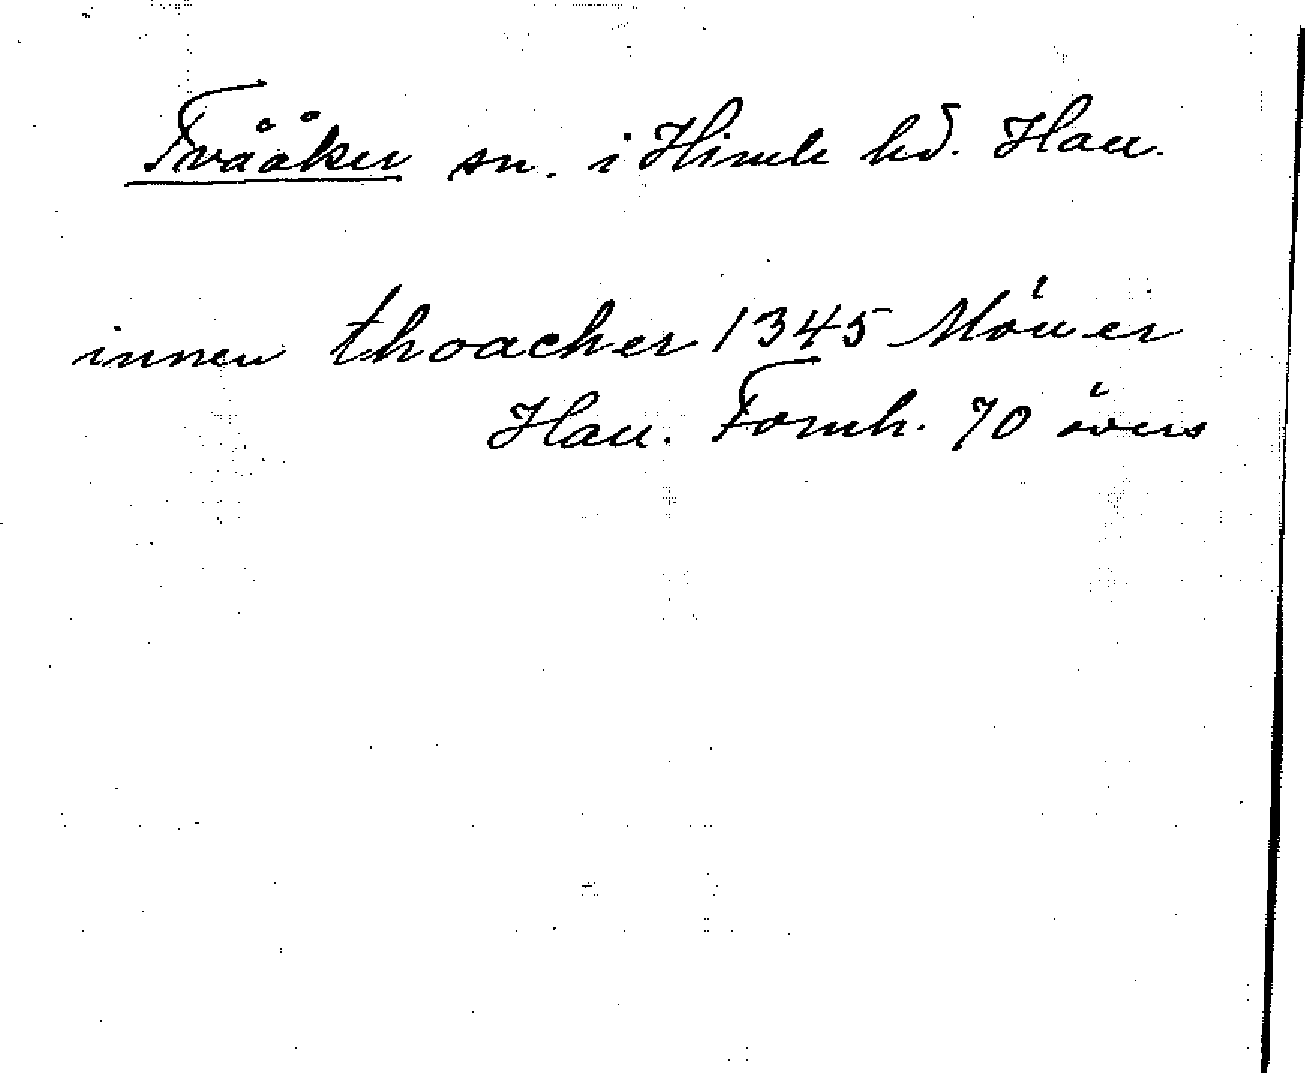 Tvååker sn. i Himle hd. Hall.
innen thoacher 1345 Möller
Hall. Fornh. 70 övers